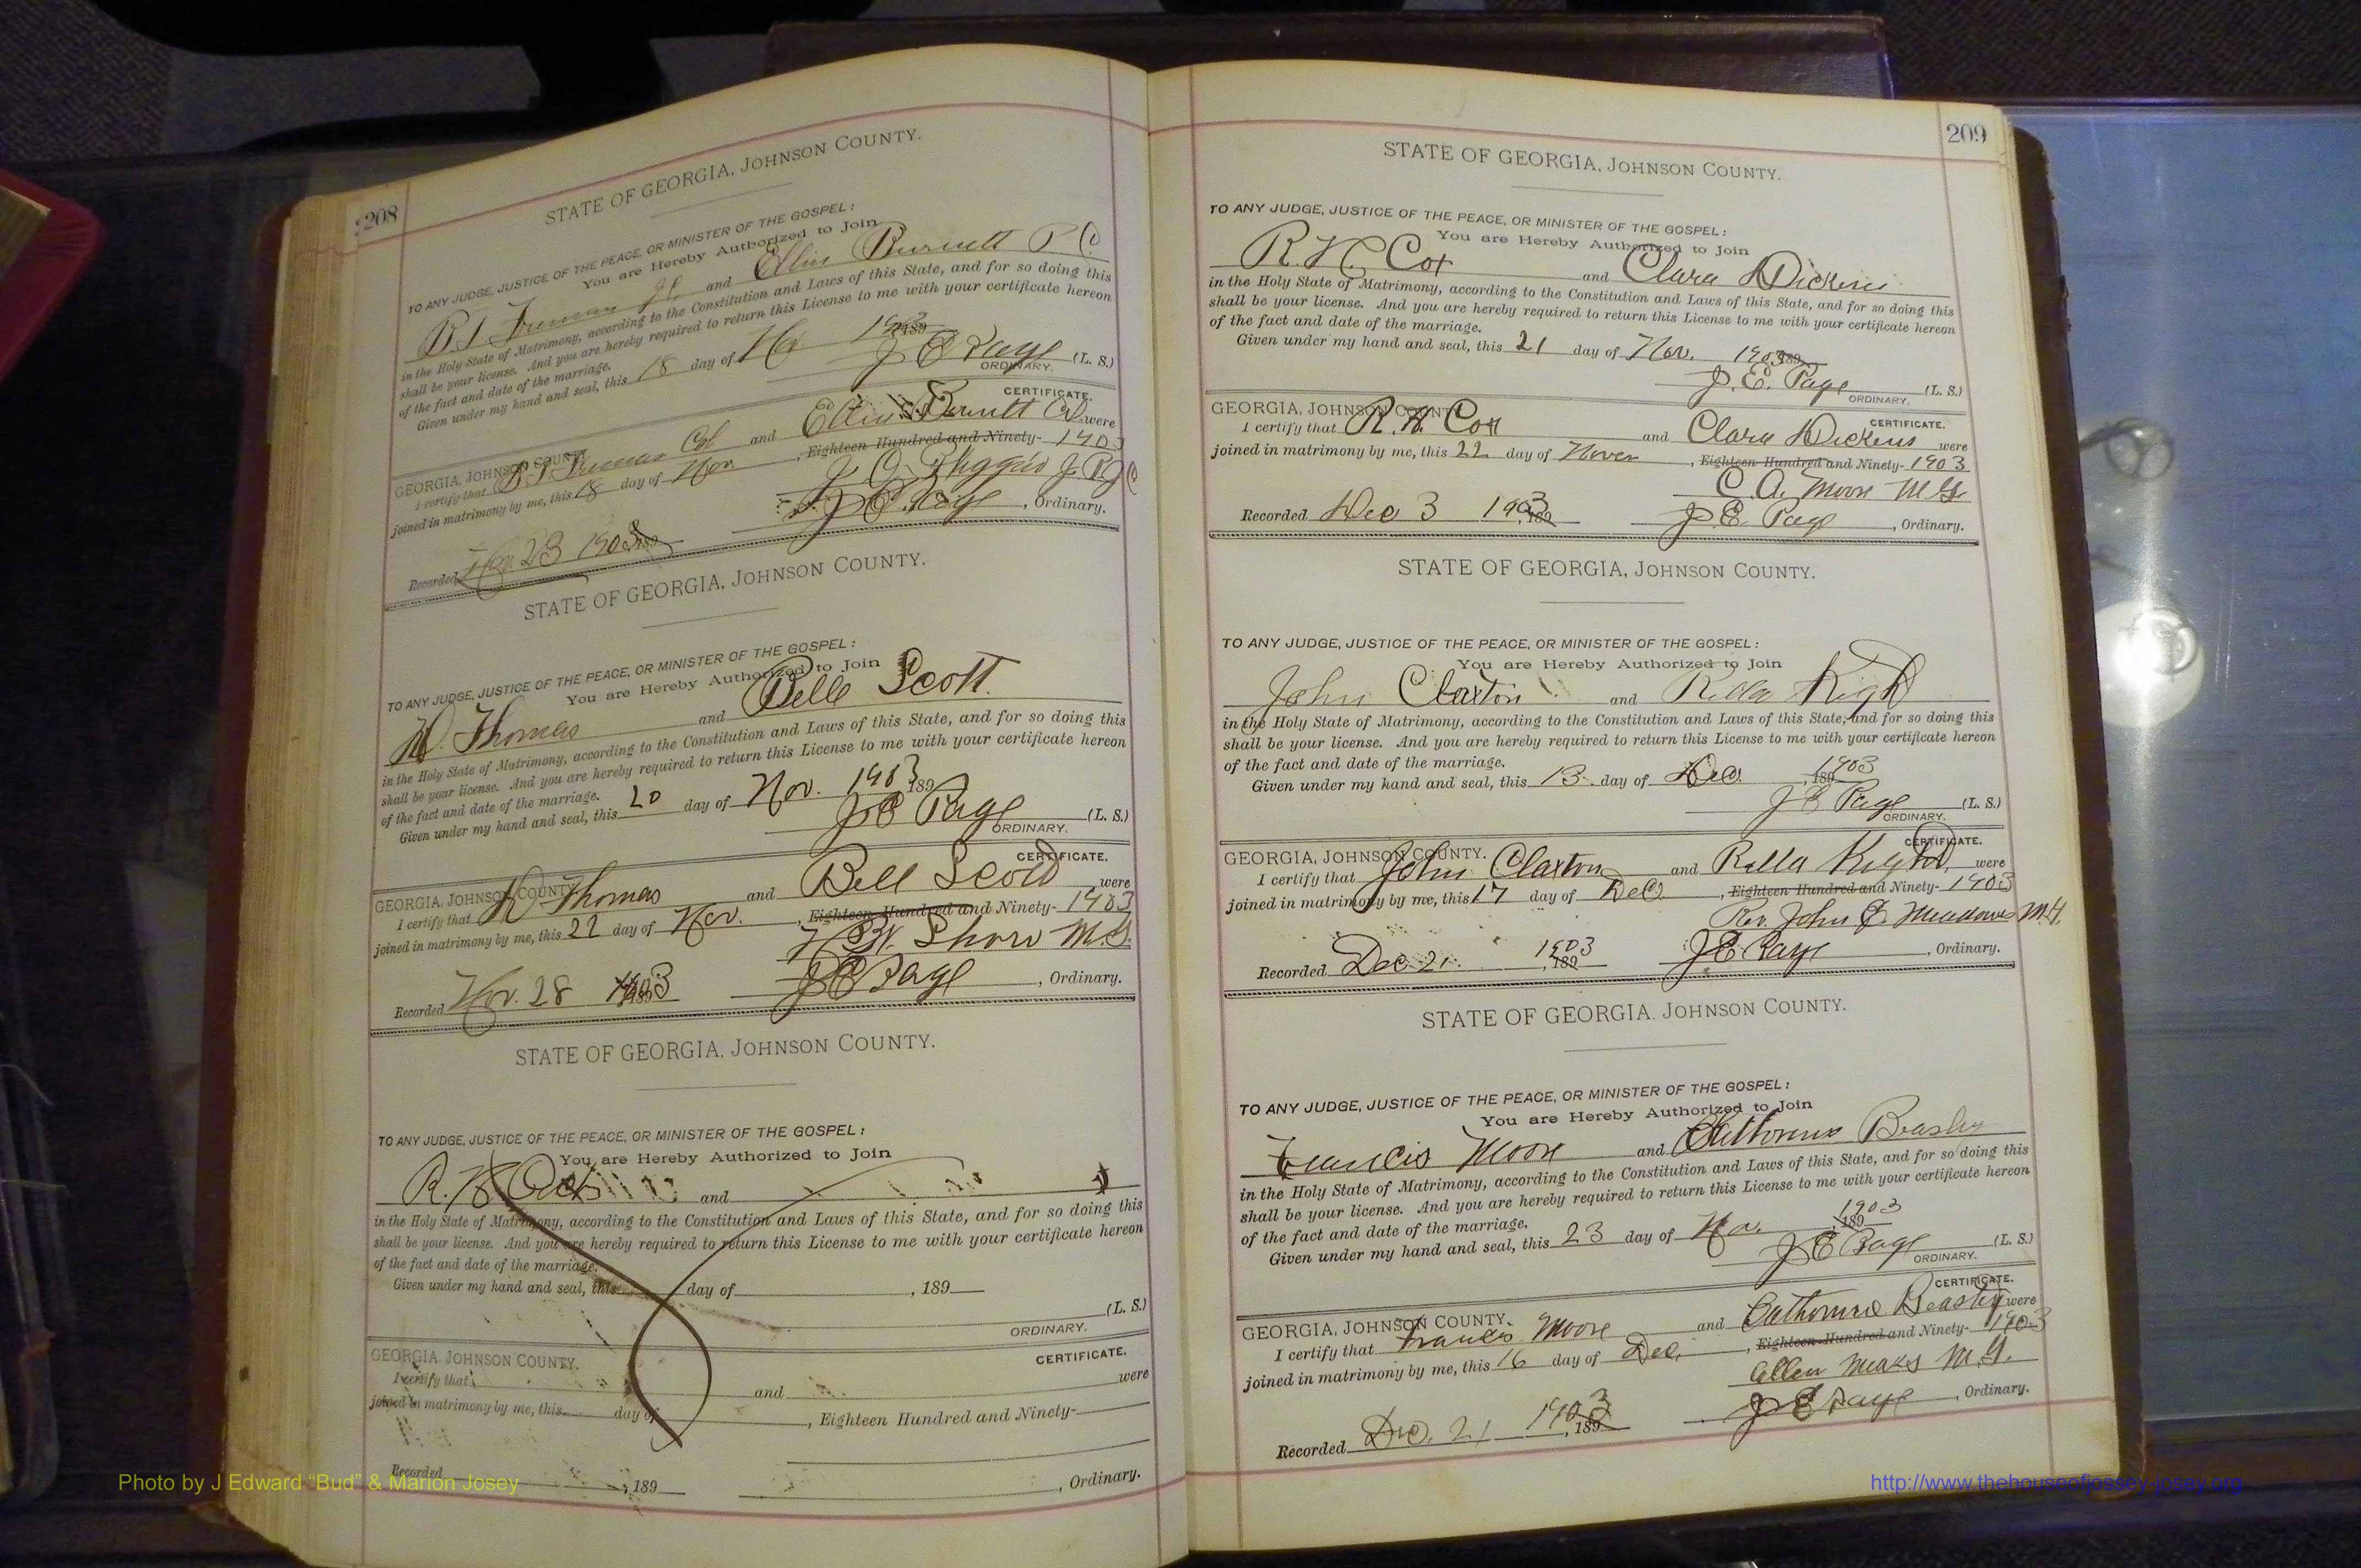 208
STATE OF GEORGIA, JOHNSON COUNTY.
TO ANY JUDGE, JUSTICE OF THE PEACE, OR MINISTER OF THE GOSPEL:
You are Hereby Authorized to Join
and
in the Holy State of Matrimony, according to the Constitution and Laws of this State, and for so doing this
shall be your license. And you are hereby required to return this License to me with your certificate hereon
of the fact and date of the marriage.
Given under my hand and seal, this 18 day of Nov. 1903 189
J E Page (L. S.)
ORDINARY.
CERTIFICATE.
GEORGIA, JOHNSON COUNTY.
I certify that Col and Col were
joined in matrimony by me, this 18 day of Nov. , Eighteen Hundred and Ninety- 1903
J E Page , Ordinary.
Recorded Nov 23 1903 189
STATE OF GEORGIA, JOHNSON COUNTY.
TO ANY JUDGE, JUSTICE OF THE PEACE, OR MINISTER OF THE GOSPEL:
You are Hereby Authorized to Join
Thomas and Belle Scott.
in the Holy State of Matrimony, according to the Constitution and Laws of this State, and for so doing this
shall be your license. And you are hereby required to return this License to me with your certificate hereon
of the fact and date of the marriage.
Given under my hand and seal, this 20 day of Nov. 1903 189
J E Page (L. S.)
ORDINARY.
CERTIFICATE.
GEORGIA, JOHNSON COUNTY.
I certify that Thomas and Bell were
joined in matrimony by me, this 22 day of Nov. , Eighteen Hundred and Ninety- 1903
M. G.
J E Page , Ordinary.
Recorded Nov. 28 1903 189
STATE OF GEORGIA, JOHNSON COUNTY.
TO ANY JUDGE, JUSTICE OF THE PEACE, OR MINISTER OF THE GOSPEL:
You are Hereby Authorized to Join
and
in the Holy State of Matrimony, according to the Constitution and Laws of this State, and for so doing this
shall be your license. And you are hereby required to return this License to me with your certificate hereon
of the fact and date of the marriage.
Given under my hand and seal, this day of , 189
(L. S.)
ORDINARY.
CERTIFICATE.
GEORGIA, JOHNSON COUNTY.
I certify that and were
joined in matrimony by me, this day of , Eighteen Hundred and Ninety-
Recorded , 189 , Ordinary.
209
STATE OF GEORGIA, JOHNSON COUNTY.
TO ANY JUDGE, JUSTICE OF THE PEACE, OR MINISTER OF THE GOSPEL:
You are Hereby Authorized to Join
R. H. Cox and Clara Dickens
in the Holy State of Matrimony, according to the Constitution and Laws of this State, and for so doing this
shall be your license. And you are hereby required to return this License to me with your certificate hereon
of the fact and date of the marriage.
Given under my hand and seal, this 21 day of Nov. 1903 189
J. E. Page (L. S.)
ORDINARY.
CERTIFICATE.
GEORGIA, JOHNSON COUNTY.
I certify that R. H. Cox and Clara Dickens were
joined in matrimony by me, this 22 day of , Eighteen Hundred and Ninety- 1903
C. A. Moore M G.
Recorded Dec 3 1903 189 J E Page , Ordinary.
STATE OF GEORGIA, JOHNSON COUNTY.
TO ANY JUDGE, JUSTICE OF THE PEACE, OR MINISTER OF THE GOSPEL:
You are Hereby Authorized to Join
John Claxton and
in the Holy State of Matrimony, according to the Constitution and Laws of this State, and for so doing this
shall be your license. And you are hereby required to return this License to me with your certificate hereon
of the fact and date of the marriage.
Given under my hand and seal, this 13 day of Dec. 1903 , 189
J E Page (L. S.)
ORDINARY.
CERTIFICATE.
GEORGIA, JOHNSON COUNTY.
I certify that John Claxton and were
joined in matrimony by me, this 17 day of Dec. , Eighteen Hundred and Ninety- 1903
Rev. John Meadows M. G.
Recorded Dec. 21. 1903 , 189 J E Page , Ordinary.
STATE OF GEORGIA, JOHNSON COUNTY.
TO ANY JUDGE, JUSTICE OF THE PEACE, OR MINISTER OF THE GOSPEL:
You are Hereby Authorized to Join
Francis Moore and Beasley
in the Holy State of Matrimony, according to the Constitution and Laws of this State, and for so doing this
shall be your license. And you are hereby required to return this License to me with your certificate hereon
of the fact and date of the marriage.
Given under my hand and seal, this 23 day of Nov. 1903 , 189
J E Page (L. S.)
ORDINARY.
CERTIFICATE.
GEORGIA, JOHNSON COUNTY.
I certify that Francis Moore and Beasley were
joined in matrimony by me, this 16 day of Dec. , Eighteen Hundred and Ninety- 1903
Allen Meaks M. G.
Recorded Dec. 21 1903 , 189 J E Page , Ordinary.
Photo by J Edward “Bud” & Marion Josey
http://www.thehouseofjossey-josey.org